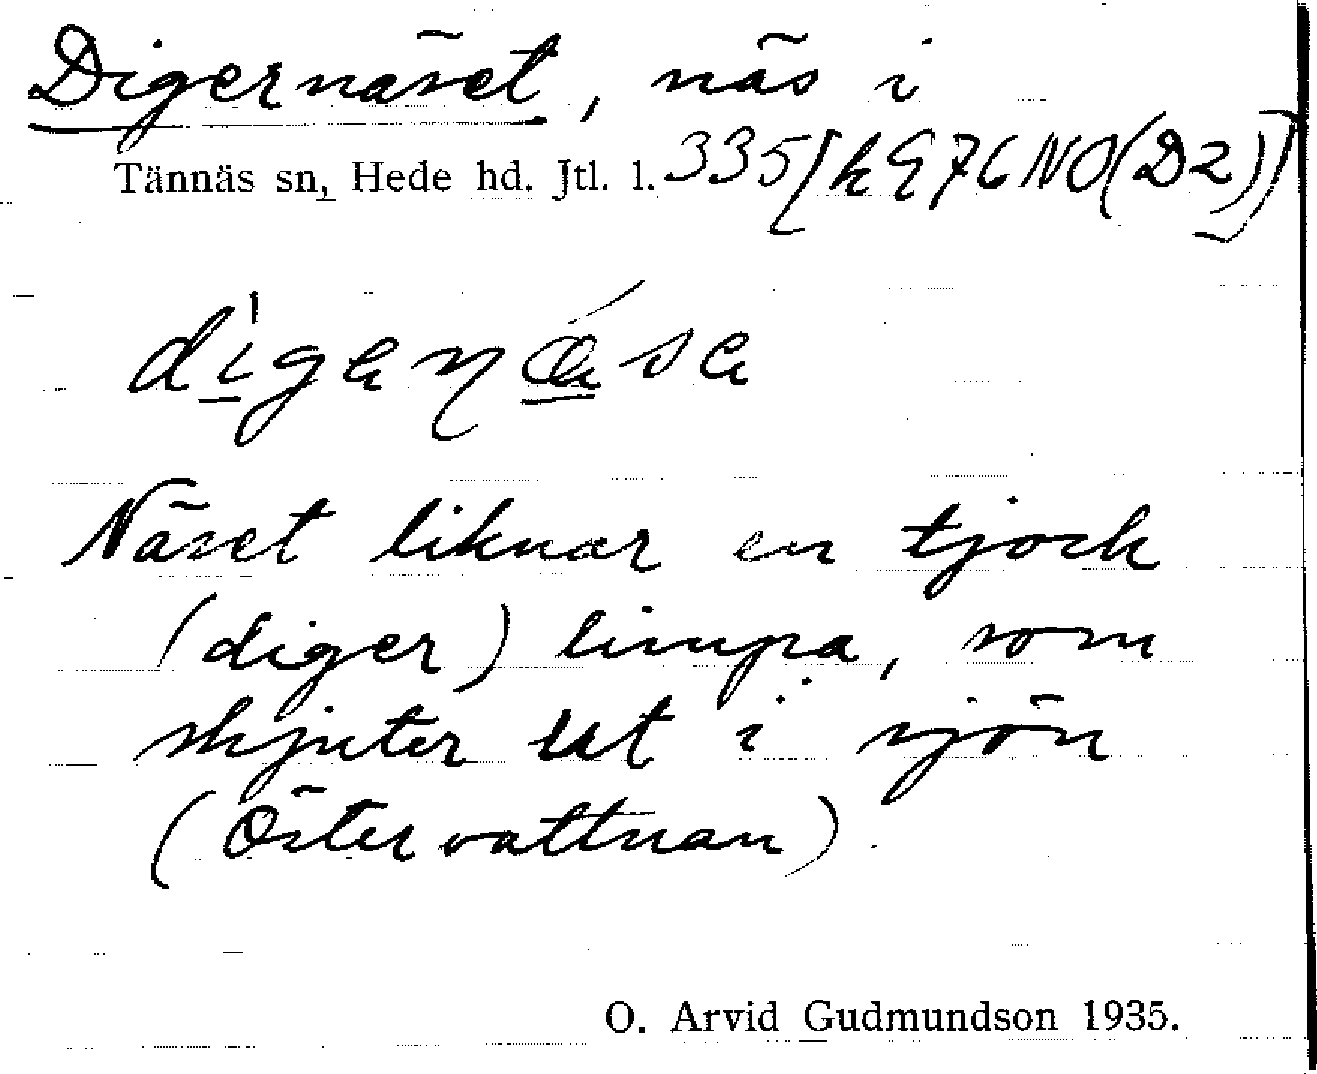 Digernäset, näs i
Tännäs sn, Hede hd. Jtl. l. 335[k976NO(D2)]
Näset liknar en tjock
(diger) limpa, som
skjuter ut i sjön
(Östervattnan).
O. Arvid Gudmundson 1935.